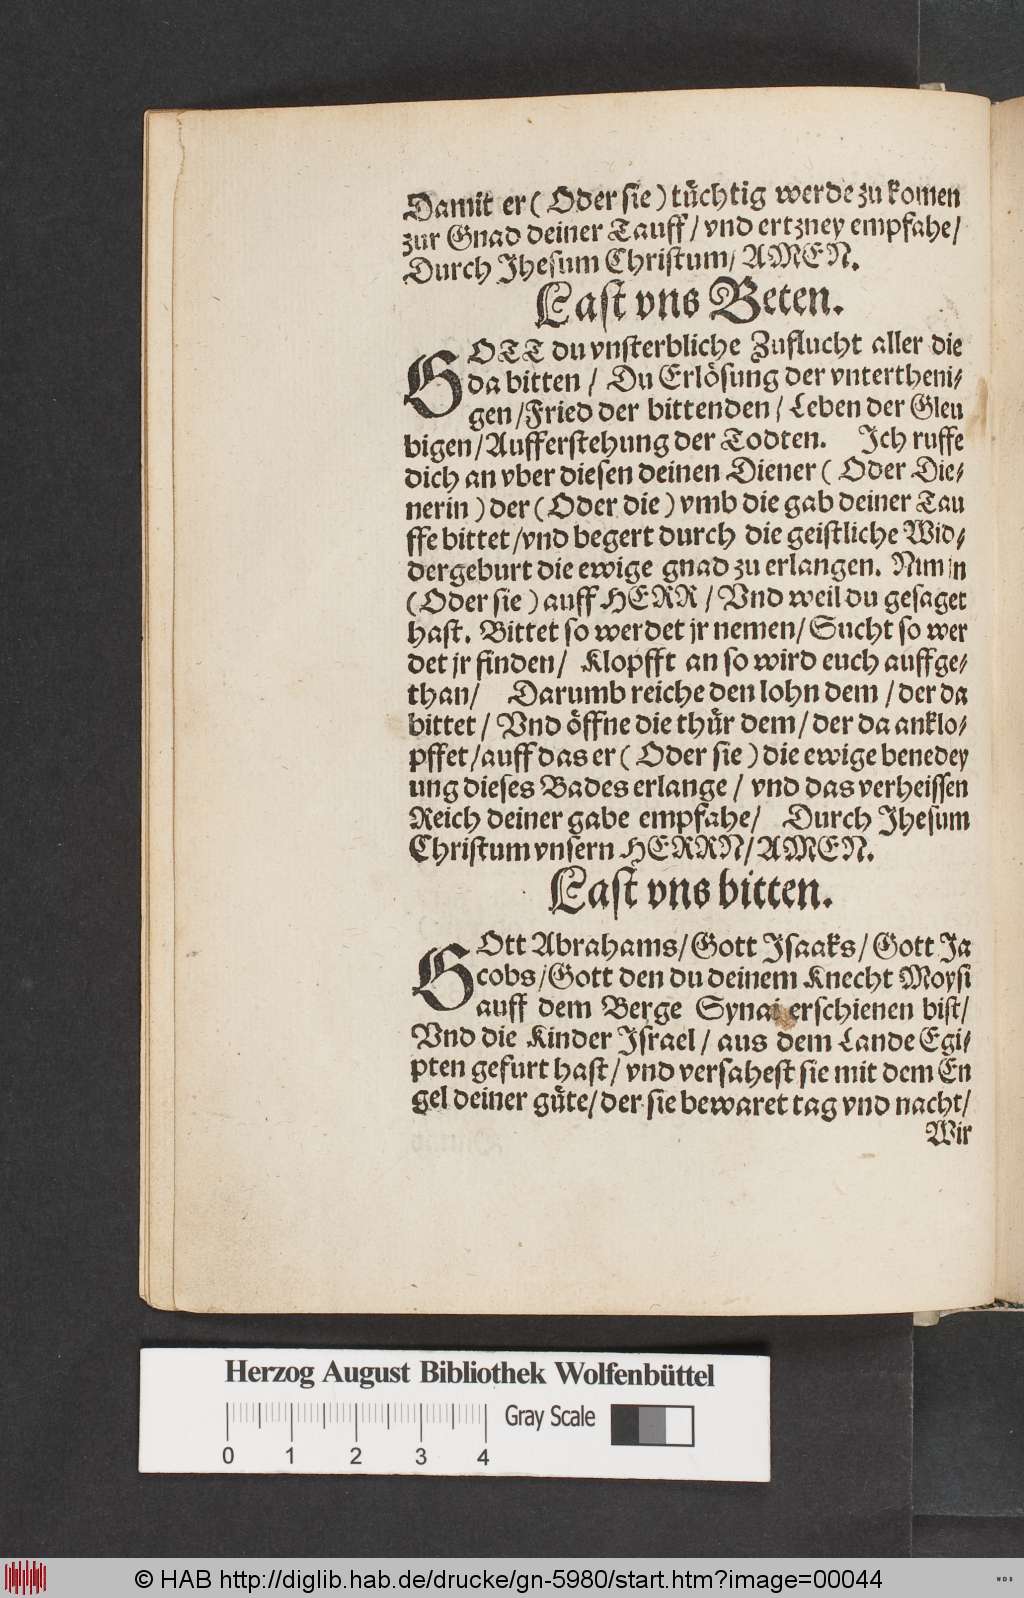 Damit er ( Oder sie ) tüchtig werde zu komen
zur Gnad deiner Tauff / vnd ertzney empfahe /
Durch Jhesum Christum / AMEN.
Last vns Beten.
GOTT du vnsterbliche Zuflucht aller die
da bitten / Du Erlösung der vntertheni-
gen / Fried der bittenden / Leben der Gleu
bigen / Aufferstehung der Todten. Jch ruffe
dich an vber diesen deinen Diener ( Oder Die-
nerin ) der ( Oder die ) vmb die gab deiner Tau
ffe bittet / vnd begert durch die geistliche Wid-
dergeburt die ewige gnad zu erlangen. Nim jn
( Oder sie ) auff HERR / Vnd weil du gesaget
hast. Bittet so werdet jr nemen / Sucht so wer
det jr finden / Klopfft an so wird euch auffge-
than / Darumb reiche den lohn dem / der da
bittet / Vnd öffne die thür dem / der da anklo-
pffet / auff das er ( Oder sie ) die ewige benedey
ung dieses Bades erlange / vnd das verheissen
Reich deiner gabe empfahe / Durch Jhesum
Christum vnsern HERRN / AMEN.
Last vns bitten.
GOtt Abrahams / Gott Jsaaks / Gott Ja
cobs / Gott den du deinem Knecht Moysi
auff dem Berge Synai erschienen bist /
Vnd die Kinder Jsrael / aus dem Lande Egi-
pten gefurt hast / vnd versahest sie mit dem En
gel deiner güte / der sie bewaret tag vnd nacht /
Wir
Herzog August Bibliothek Wolfenbüttel
Gray Scale
0 1 2 3 4
© HAB http://diglib.hab.de/drucke/gn-5980/start.htm?image=00044